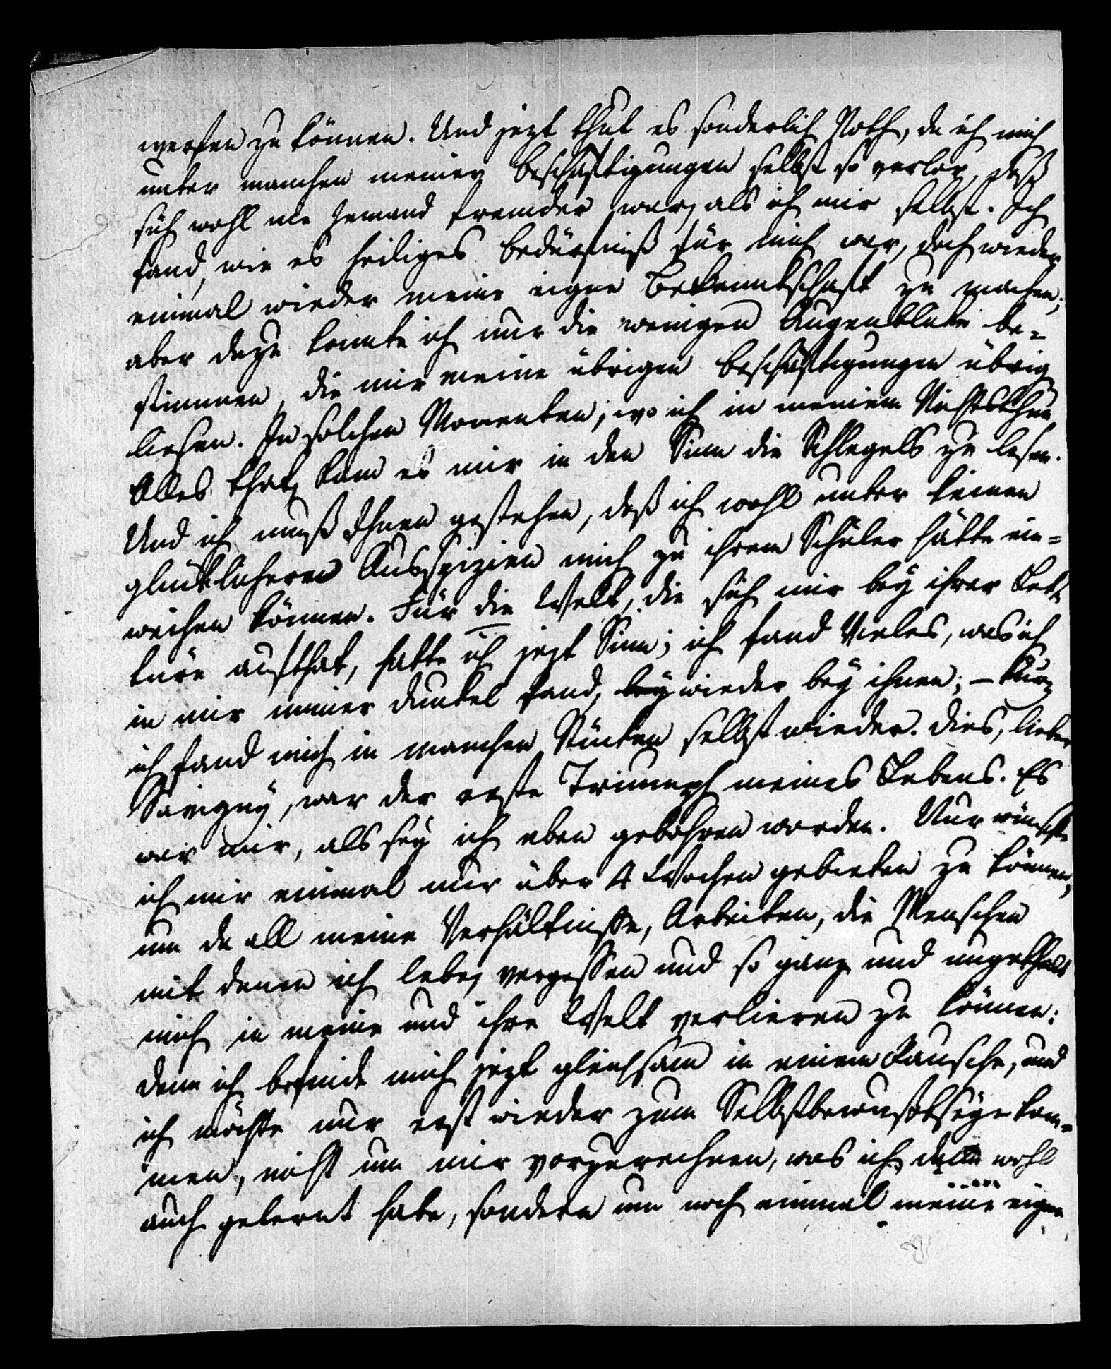 werfen zu können. Und jezt thut es sonderlich Noth, da ich mich
unter manchen meiner Beschäftigungen selbst so verlor, daß
sich wohl nie Jemand fremder war, als ich mir selbst. Ich
fand, wie es heiliges Bedürfniß für mich war, doch wieder
einmal wieder meine eigne Bekanntschaft zu machen;
aber dazu konnte ich nur die wenigen Augenblicke be-
stimmen, die mir meine übrigen Beschäftigungen übrig
liesen. In solchen Momenten, wo ich in meinem Nichtsthun
Alles that, kam es mir in den Sinn die Schlegels zu lesen.
Und ich muß Ihnen gestehen, daß ich wohl unter keinen
glücklicheren Ausspizien mich zu ihrem Schüler hätte ein=
weihen können. Für die Welt, die sich mir bey ihrer Lek
türe aufthat, hatte ich jezt Sinn; ich fand Vieles, was ich
in mir immer dunkel fand, bey wieder bey ihnen; – kurz
ich fand mich in manchen Stücken selbst wieder. Dies, lieber
Savigny, war der erste Triumph meines Lebens. Es
war mir, als sey ich eben gebohren worden. Nur wünschte
ich mir einmal nur über 4 Wochen gebieten zu können,
um da all meine Verhältniße, Arbeiten, die Menschen
mit denen ich lebe, vergessen und so ganz und ungetheilt
mich in meine und ihre Welt verlieren zu können:
denn ich befinde mich jezt gleichsam in einem Rausche, und
ich möchte nur erst wieder zum Selbstbewußtseyn kom=
men, nicht um mir vorzurechnen, was ich wohl
auch gelernt habe, sondern um noch einmal meine eigne